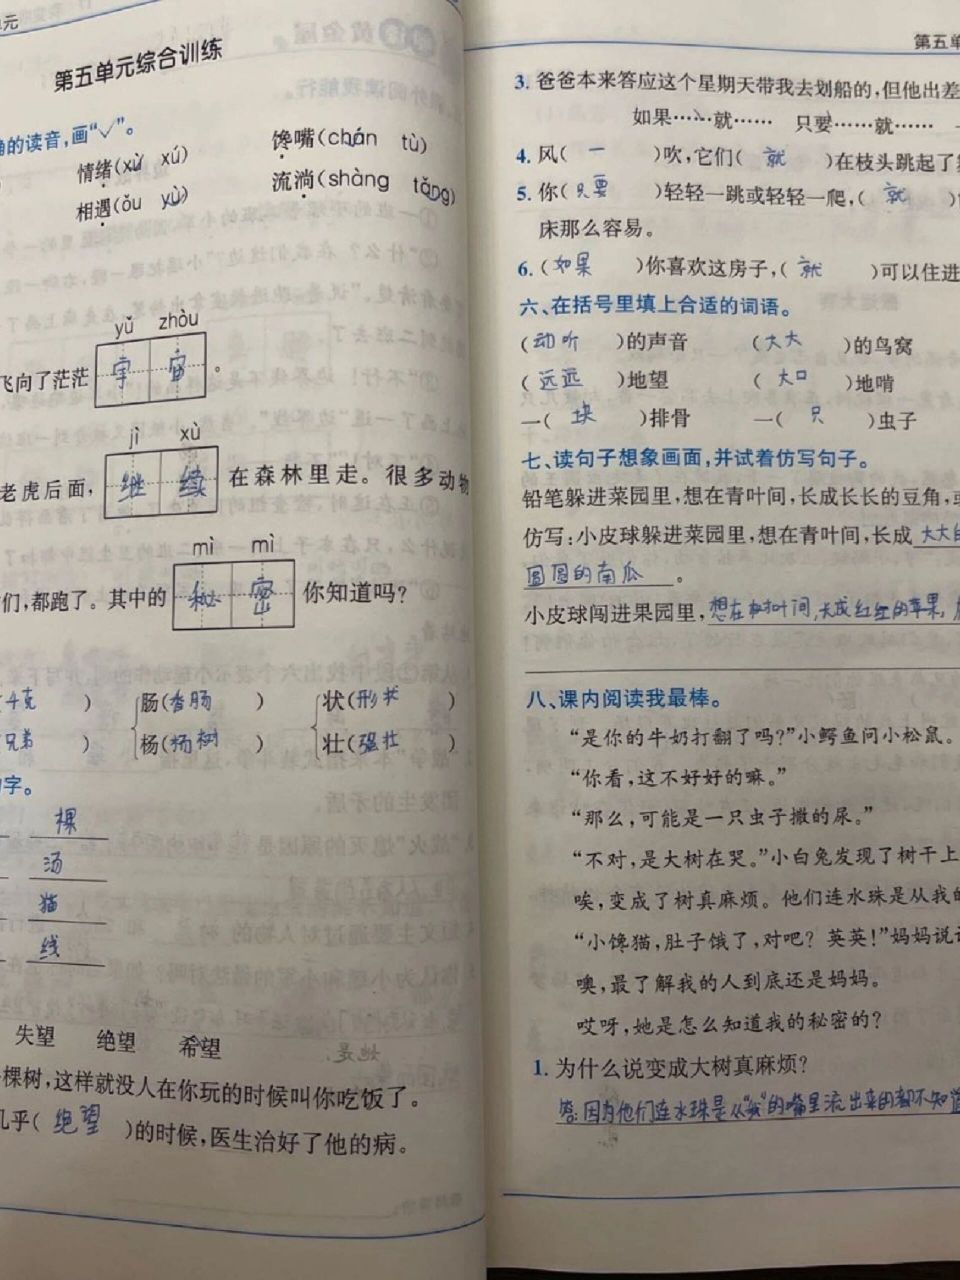 元
第五单元综合训练
确的读音,画“√”。
情绪(xù xú)
馋嘴(chán tù)
相遇(ǒu yù)
流淌(shàng tǎng)
yǔ zhòu
飞向了茫茫 宇宙 。
jì xù
老虎后面, 继续 在森林里走。很多动物
mì mì
们,都跑了。其中的 秘密 你知道吗?
(千克) 肠(香肠) 状(形状)
兄弟) 杨(杨树) 壮(强壮)
字。
棵
汤
猫
线
失望 绝望 希望
棵树,这样就没人在你玩的时候叫你吃饭了。
几乎(绝望)的时候,医生治好了他的病。
第五单
3. 爸爸本来答应这个星期天带我去划船的,但他出差
如果……就…… 只要……就……
4. 风(一)吹,它们(就)在枝头跳起了
5. 你(只要)轻轻一跳或轻轻一爬,(就)
床那么容易。
6. (如果)你喜欢这房子,(就)可以住进
六、在括号里填上合适的词语。
(动听)的声音 (大大)的鸟窝
(远远)地望 (大口)地啃
一(块)排骨 一(只)虫子
七、读句子想象画面,并试着仿写句子。
铅笔躲进菜园里,想在青叶间,长成长长的豆角,或
仿写:小皮球躲进菜园里,想在青叶间,长成 大大的
圆圆的南瓜。
小皮球闯进果园里,想在树叶间,长成红红的苹果,
八、课内阅读我最棒。
“是你的牛奶打翻了吗?”小鳄鱼问小松鼠。
“你看,这不好好的嘛。”
“那么,可能是一只虫子撒的尿。”
“不对,是大树在哭。”小白兔发现了树干上
唉,变成了树真麻烦。他们连水珠是从我的
“小馋猫,肚子饿了,对吧?英英!”妈妈说
噢,最了解我的人到底还是妈妈。
哎呀,她是怎么知道我的秘密的?
1. 为什么说变成大树真麻烦?
答:因为他们连水珠是从“我”的嘴里流出来的都不知道